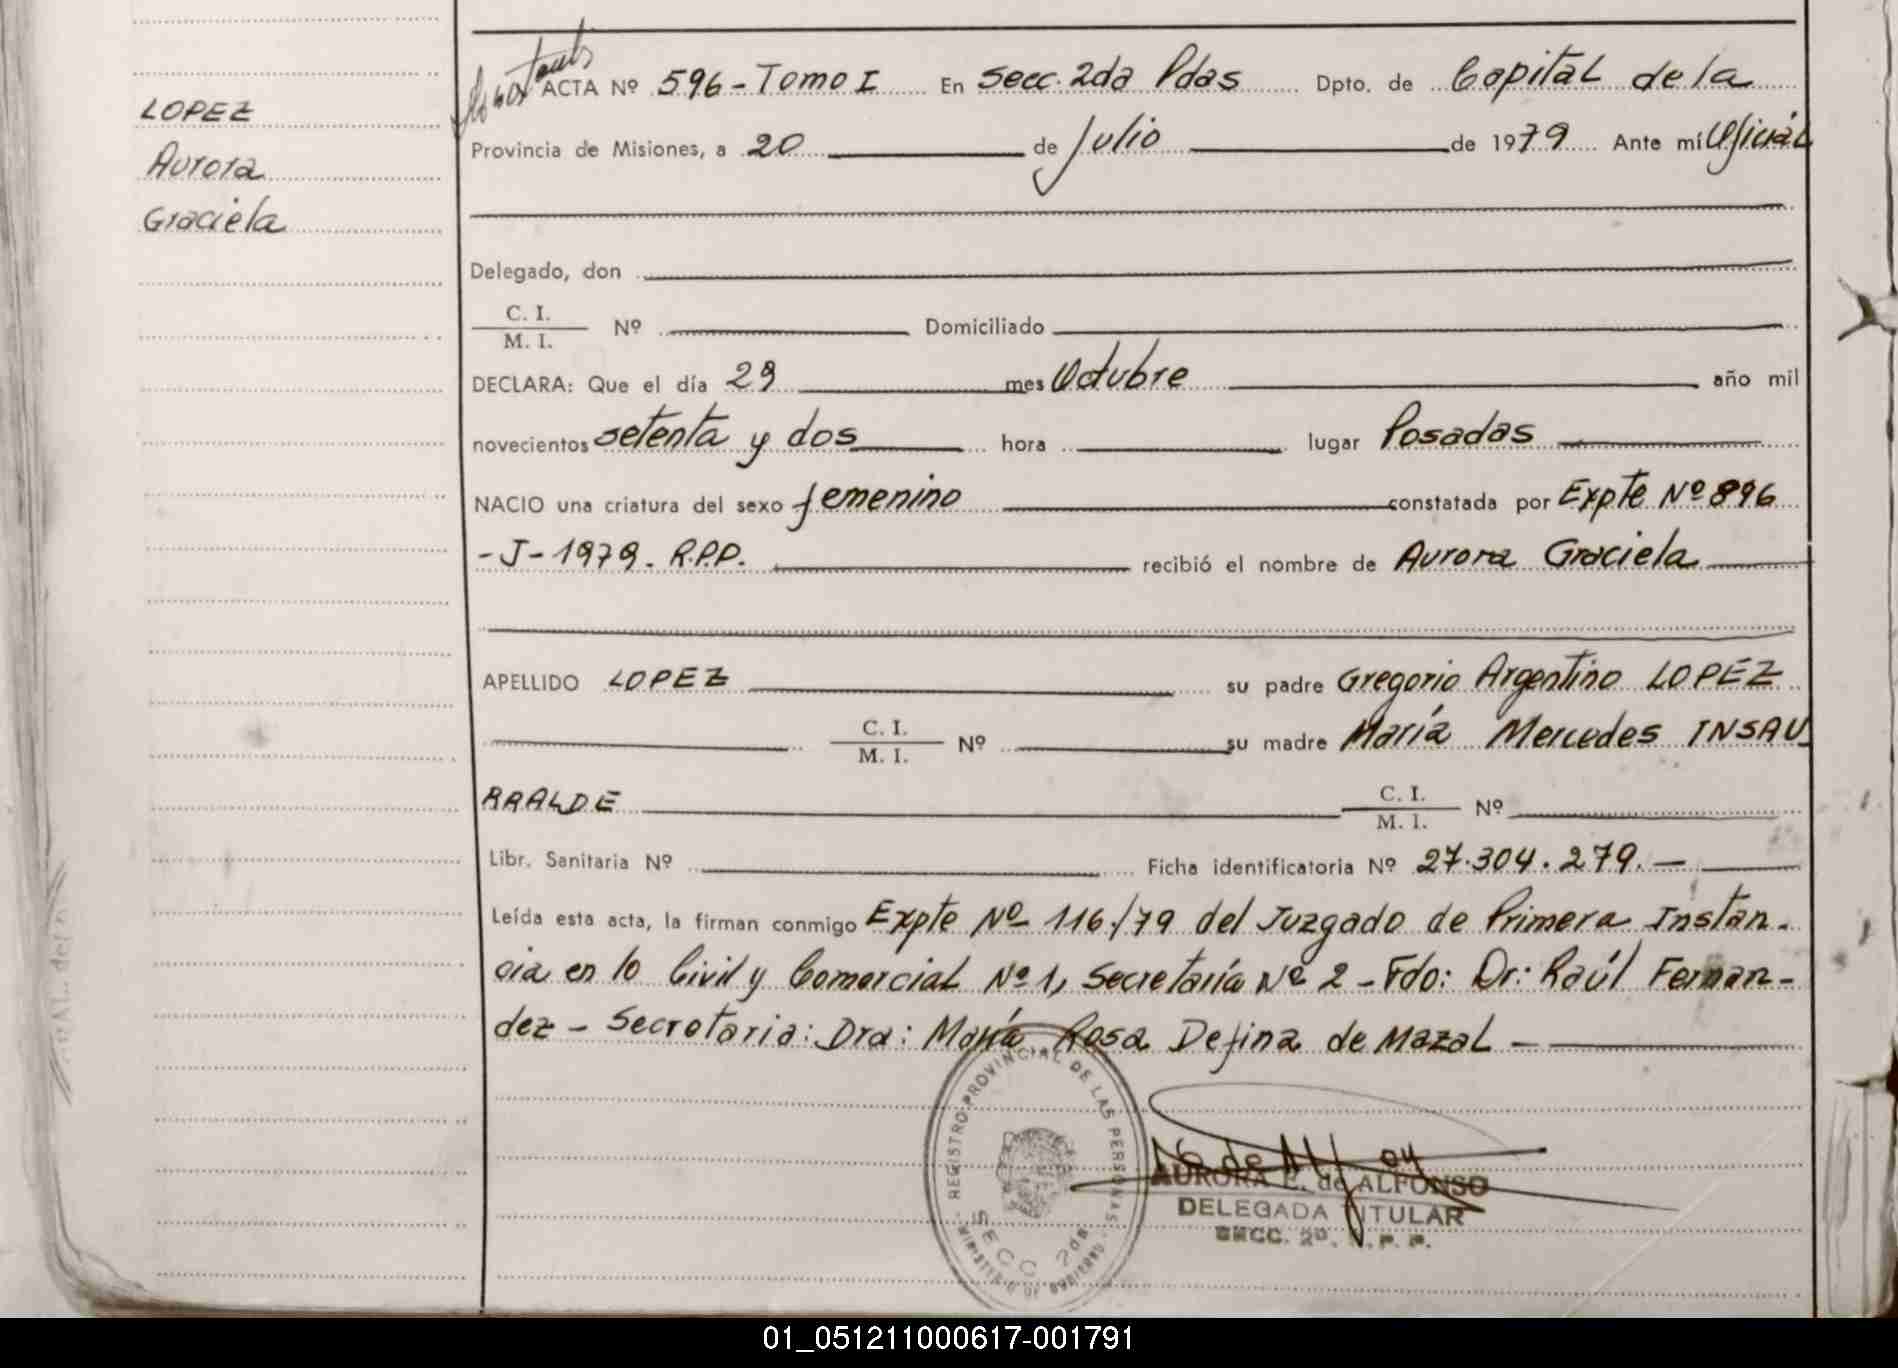 LOPEZ
Aurora
Graciela
ACTA Nº 596-Tomo I En Secc. 2da Pdas Dpto. de Capital de la
Provincia de Misiones, a 20 de Julio de 1979 Ante mí Oficial
Delegado, don
C. I.
M. I.
Nº Domiciliado
DECLARA: Que el día 29 mes Octubre año mil
novecientos setenta y dos hora lugar Posadas
NACIO una criatura del sexo femenino constatada por Expte Nº 896
-J-1979. R.P.P. recibió el nombre de Aurora Graciela
APELLIDO LOPEZ su padre Gregorio Argentino LOPEZ
C. I.
M. I.
Nº su madre María Mercedes INSAU
RRALDE
C. I.
M. I.
Nº
Libr. Sanitaria Nº Ficha identificatoria Nº 27.304.279.—
Leída esta acta, la firman conmigo Expte Nº 116/79 del Juzgado de Primera Instan-
cia en lo Civil y Comercial Nº 1, Secretaría Nº 2 - Fdo: Dr: Raúl Fernan-
dez - Secretaria: Dra: María Rosa Defina de Mazal —
REGISTRO PROVINCIAL DE LAS PERSONAS
MINISTERIO DE GOBIERNO
SECC 2da
AURORA E. de ALFONSO
DELEGADA TITULAR
SECC. 2ª. R. P. P.
01_051211000617-001791